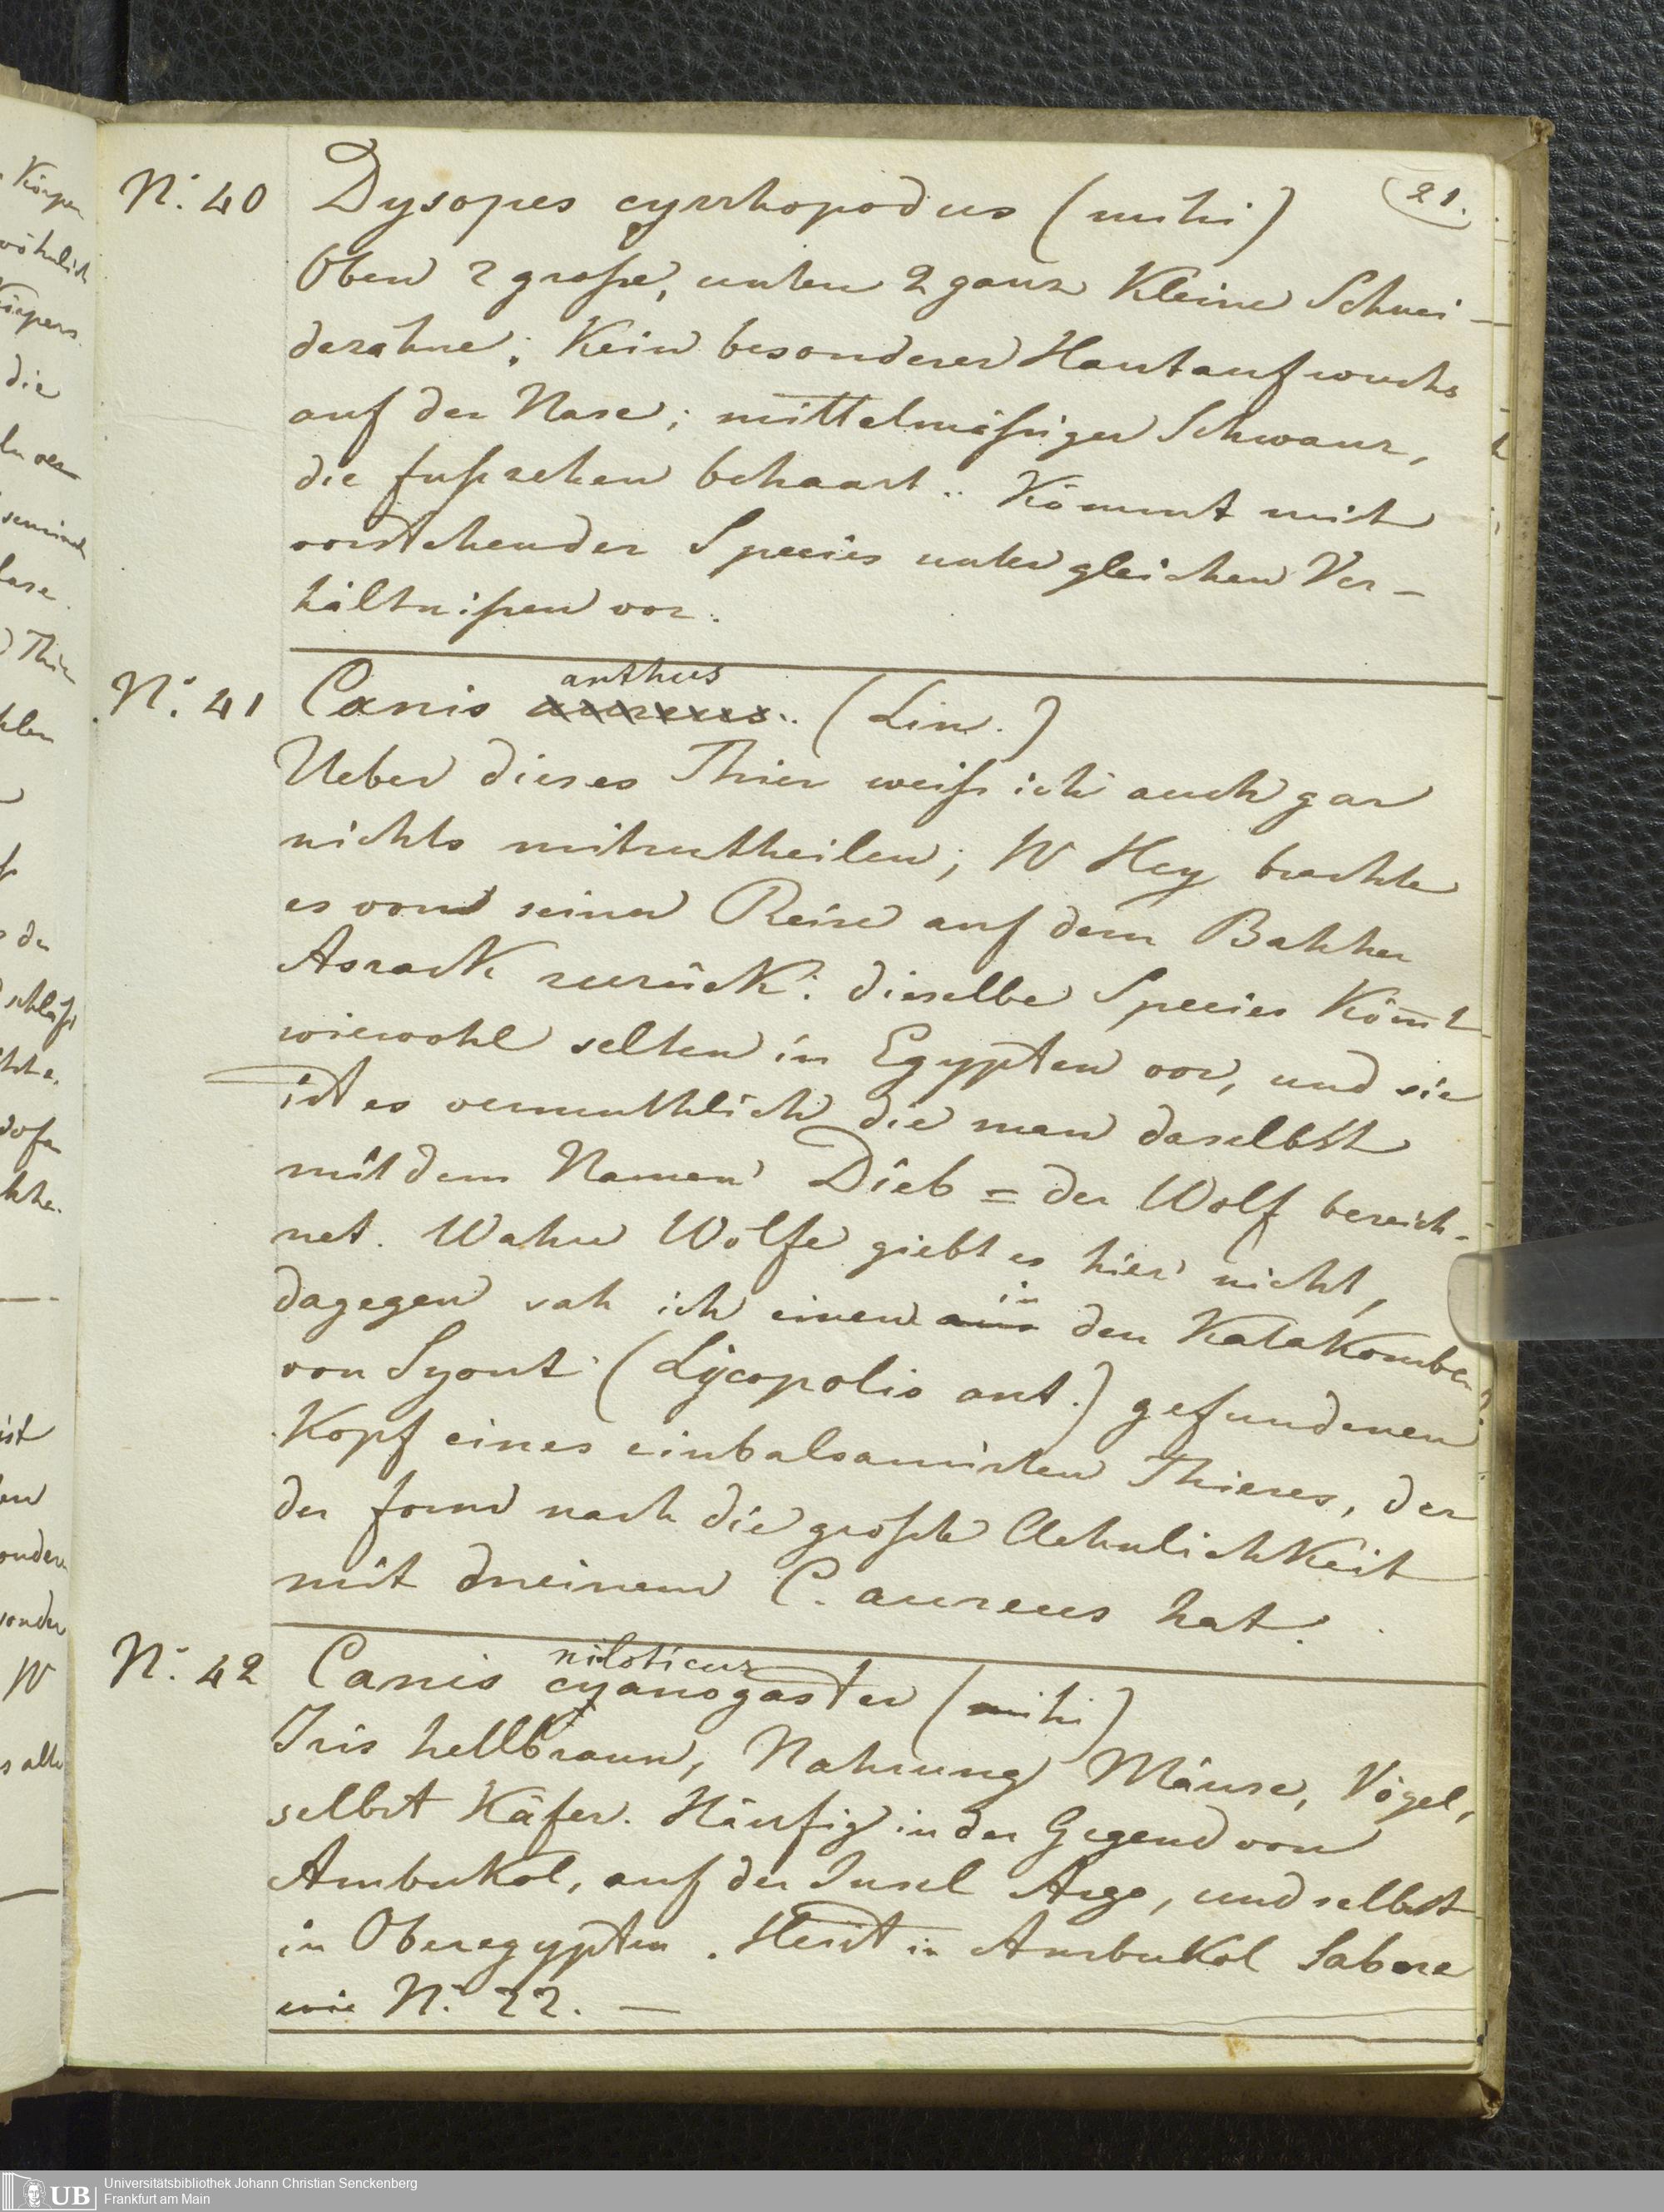 21.
N: 40 Dysopes cyrrhopodus (mihi)
Oben 2 große, unten 2 ganz kleine Schnei-
dezähne; Kein besonderer Hautaufwuchs
auf der Nase; mittelmäßiger Schwanz,
die fußzehen behaart.. Kömmt mit
vorstehender Species unter gleichen Ver-
hältnißen vor.
anthus
N: 41 Canis aureus.. (Lin.)
Ueber dieses Thier weiß ich auch gar
nichts mitzutheilen; W Hey brachte
es von seiner Reise auf dem Bahher
Asrack zurück: dieselbe Species kom̄t
wiewohl selten in Egypten vor, und sie
ist es vermuthlich die man daselbst
mit dem Namen Dieb = der Wolf bezeich-
net. Wahre Wölfe giebt es hier nicht,
in
dagegen sah ich einen aus den Katakomben
von Syout (Lycopolis ant.) gefundenen
Kopf eines einbalsamirten Thieres, der
der form nach die größte Aehnlichkeit
mit meinem C. aureus hat.
niloticus
N: 42 Canis cyanogaster (mihi)
Iris hellbraun, Nahrung Mäuse, Vögel,
selbst Käfer. Häufig in der Gegend von
Ambukol, auf der Insel Argo, und selbst
in Oberegypten. Heist in Ambukol Sabera
wie N: 22. —
Universitätsbibliothek Johann Christian Senckenberg
Frankfurt am Main
UB